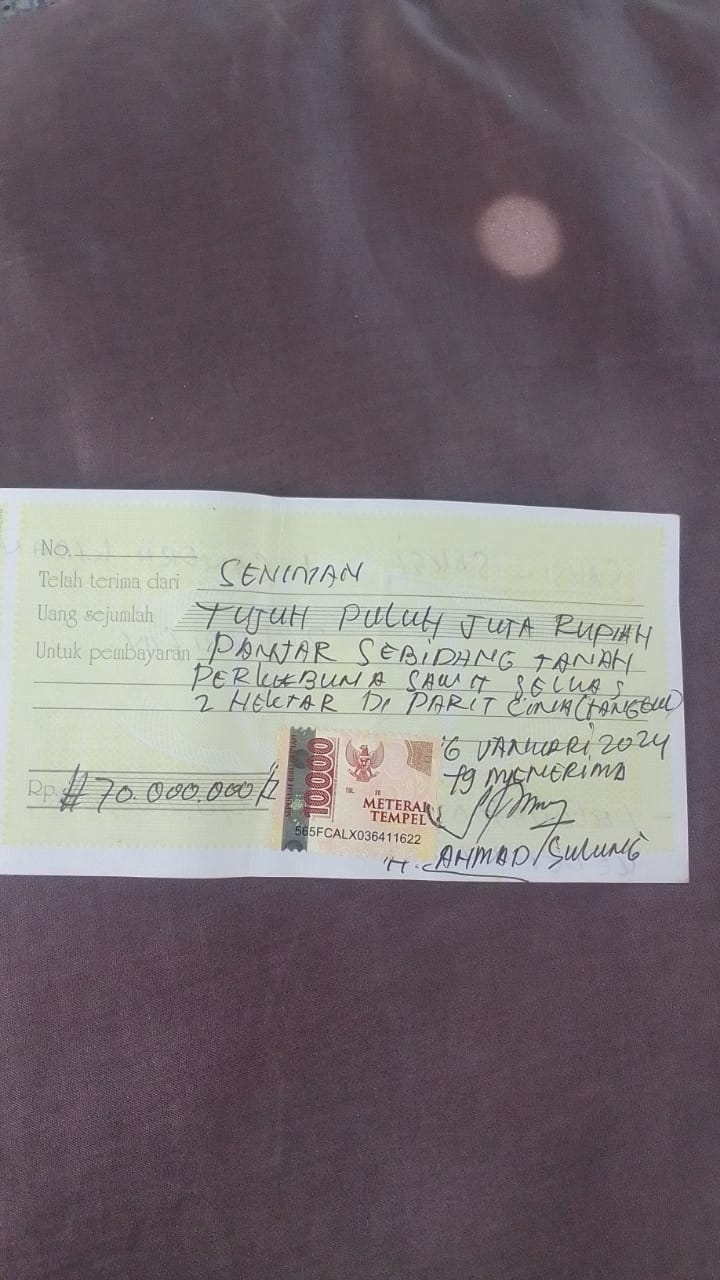 No.
Telah terima dari SENIMAN
Uang sejumlah TUJUH PULUH JUTA RUPIAH
Untuk pembayaran PANJAR SEBIDANG TANAH
PERKEBUNA SAWIT SELUAS
2 HEKTAR DI PARIT CINA (TANGGUL)
6 JANUARI 2024
Yg MENERIMA
Rp. # 70.000.000
10000
METERAI
TEMPEL
565FCALX036411622
H. AHMAD / SULUNG